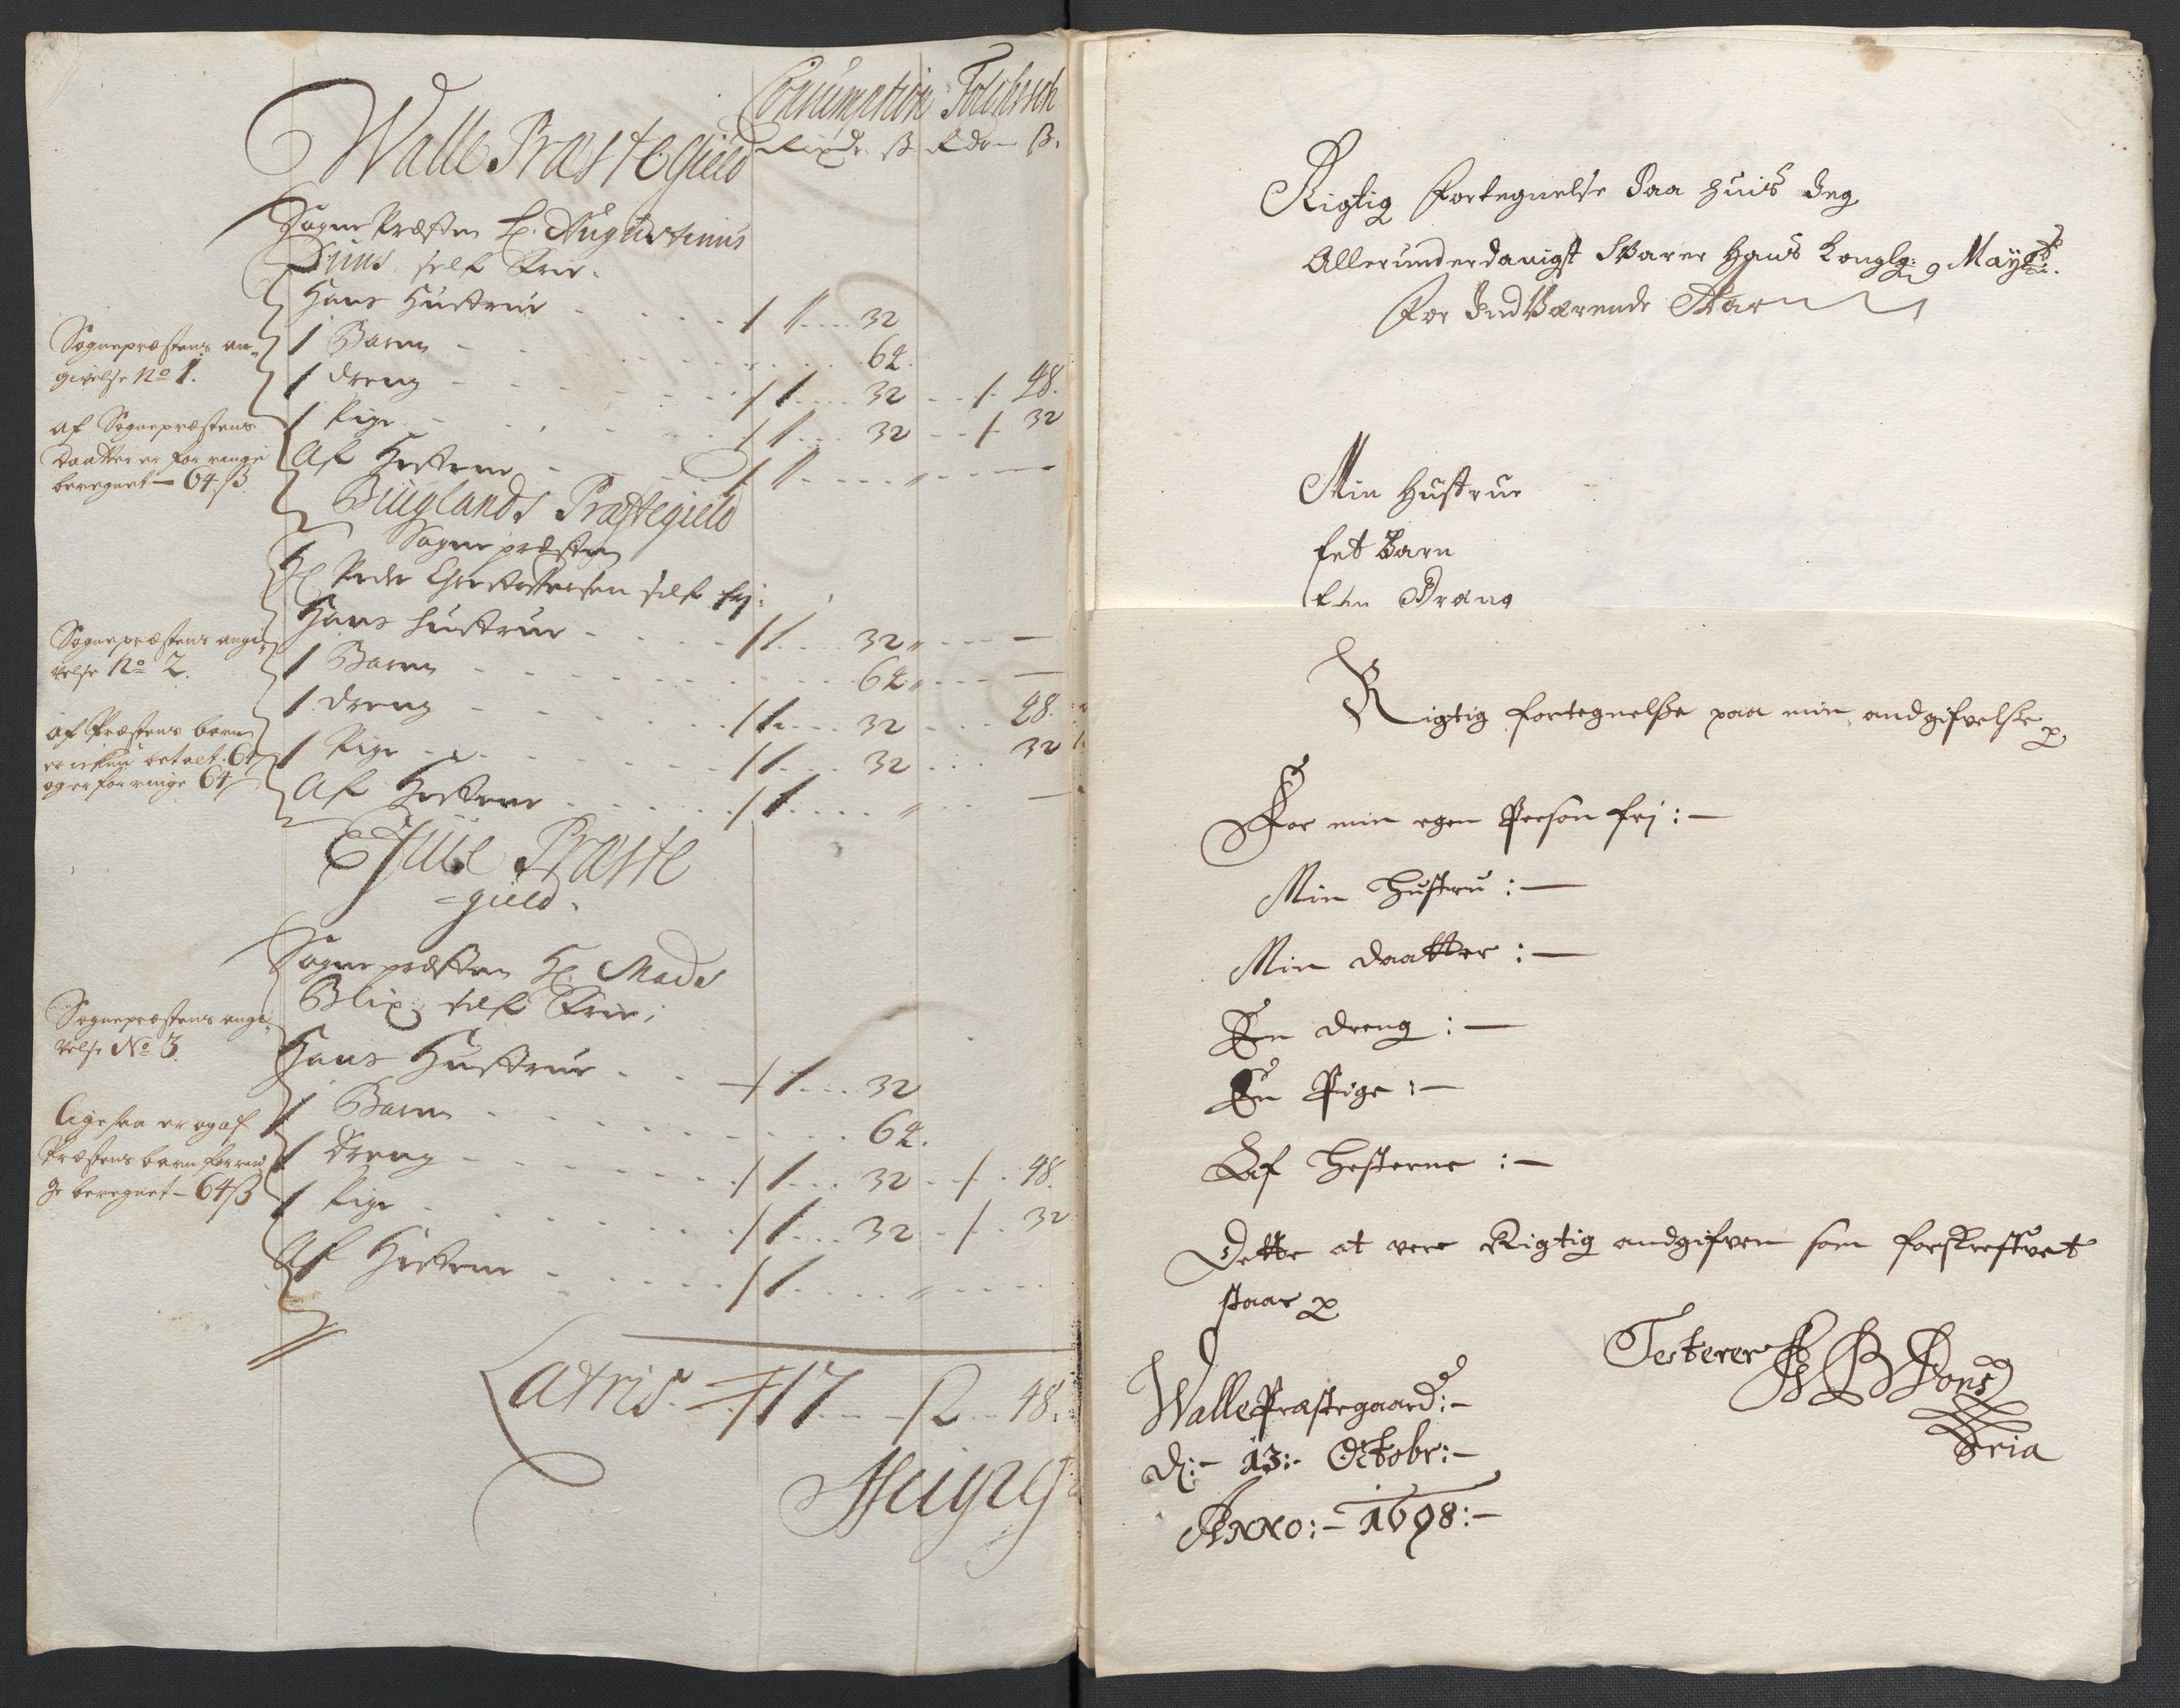 Consumption Folcheskt
Rixdr. ß Rdr ß.
Walle Præstegield
Sogne Præsten H. Augustinus
self Frie.
Hans Hustrue 1 32
1 Barn 64.
1 dreng 1 32 48.
1 Pige 1 32 32
Af Hesterne 1 "
Sognepræstens an-
givelse No 1.
af Sognepræstens
Daatter er for ringe
beregnet - 64 ß.
Biuglands Præstegield
Sogne præsten
H Peder Christophersen self fri:
Hans Hustrue 1 32 "
1 Barn 64 "
1 dreng 1 32 48.
1 Pige 1 32 32
Af Hesterne 1 "
Sognepræstens angi-
velse No 2.
af Præstens barn
er ickun betalt 64
og er for ringe 64
Præste
-gield.
Sognepræsten Hr. Mads
Blix self Frie;
Hans Hustrue 1 32
1 Barn 64.
1 dreng 1 32 48.
1 Pige 1 32 32
Af Hesterne 1 "
Sognepræstens angi-
velse No 3.
ligesaa er og af
Præstens barn for rin
ge beregnet - 64 ß
Latris. 17 2 48.
Rigtig Fortegnelse Paa huis Jeg
Allerunderdanigst Svarer Hans Konglg: Mayst.
For Indværende Aar
Min Hustrue
Eet Barn
Een Dræng
Rigtig fortegnelse paa min andgifvelse
For min egen Person fri: -
Min Hustru: -
Min daatter: -
En dreng: -
En Pige: -
Af Hesterne: -
Dette at vere Rigtig andgifven som forskrefvet
staar
Testerer
Walle Præstegaard: -
d: - 13: - Octobr: -
Anno: - 1698: -